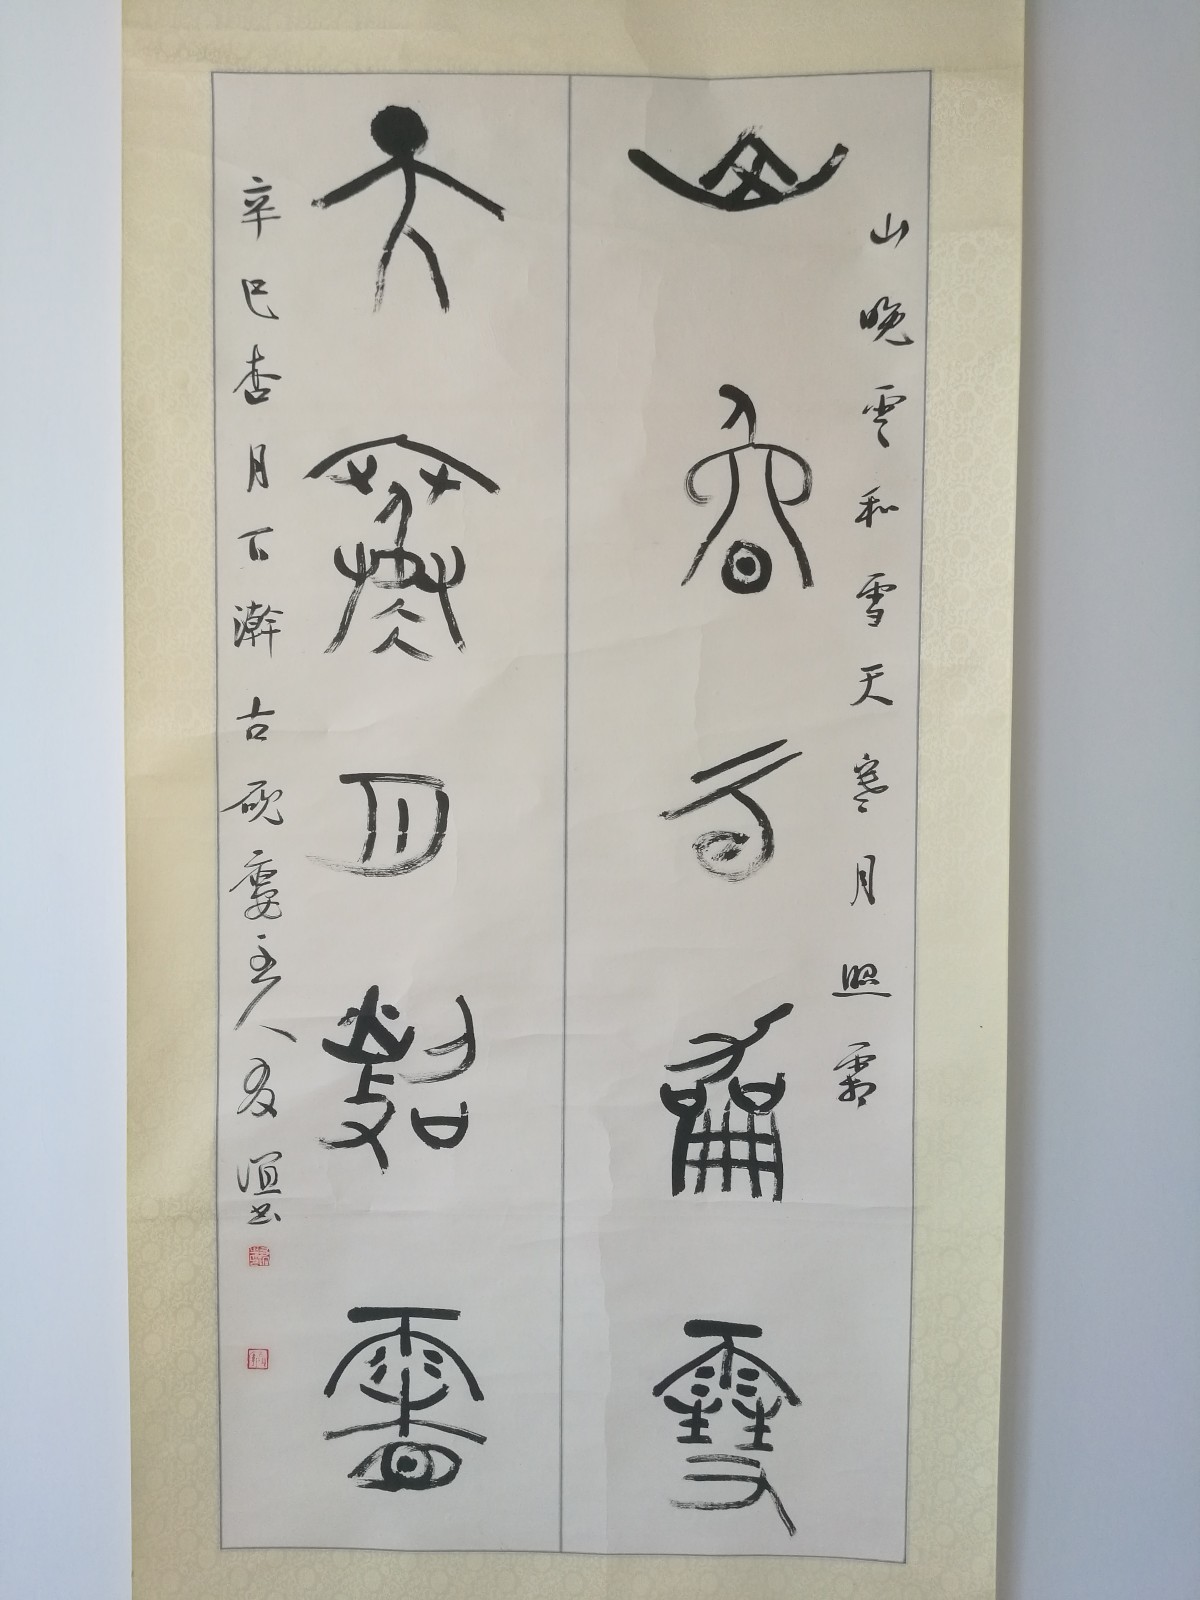 山晚雲和雪天寒月照霜
山晚雲和雪
天寒月照霜
辛巳杏月下瀚古硯齋主人友谊书